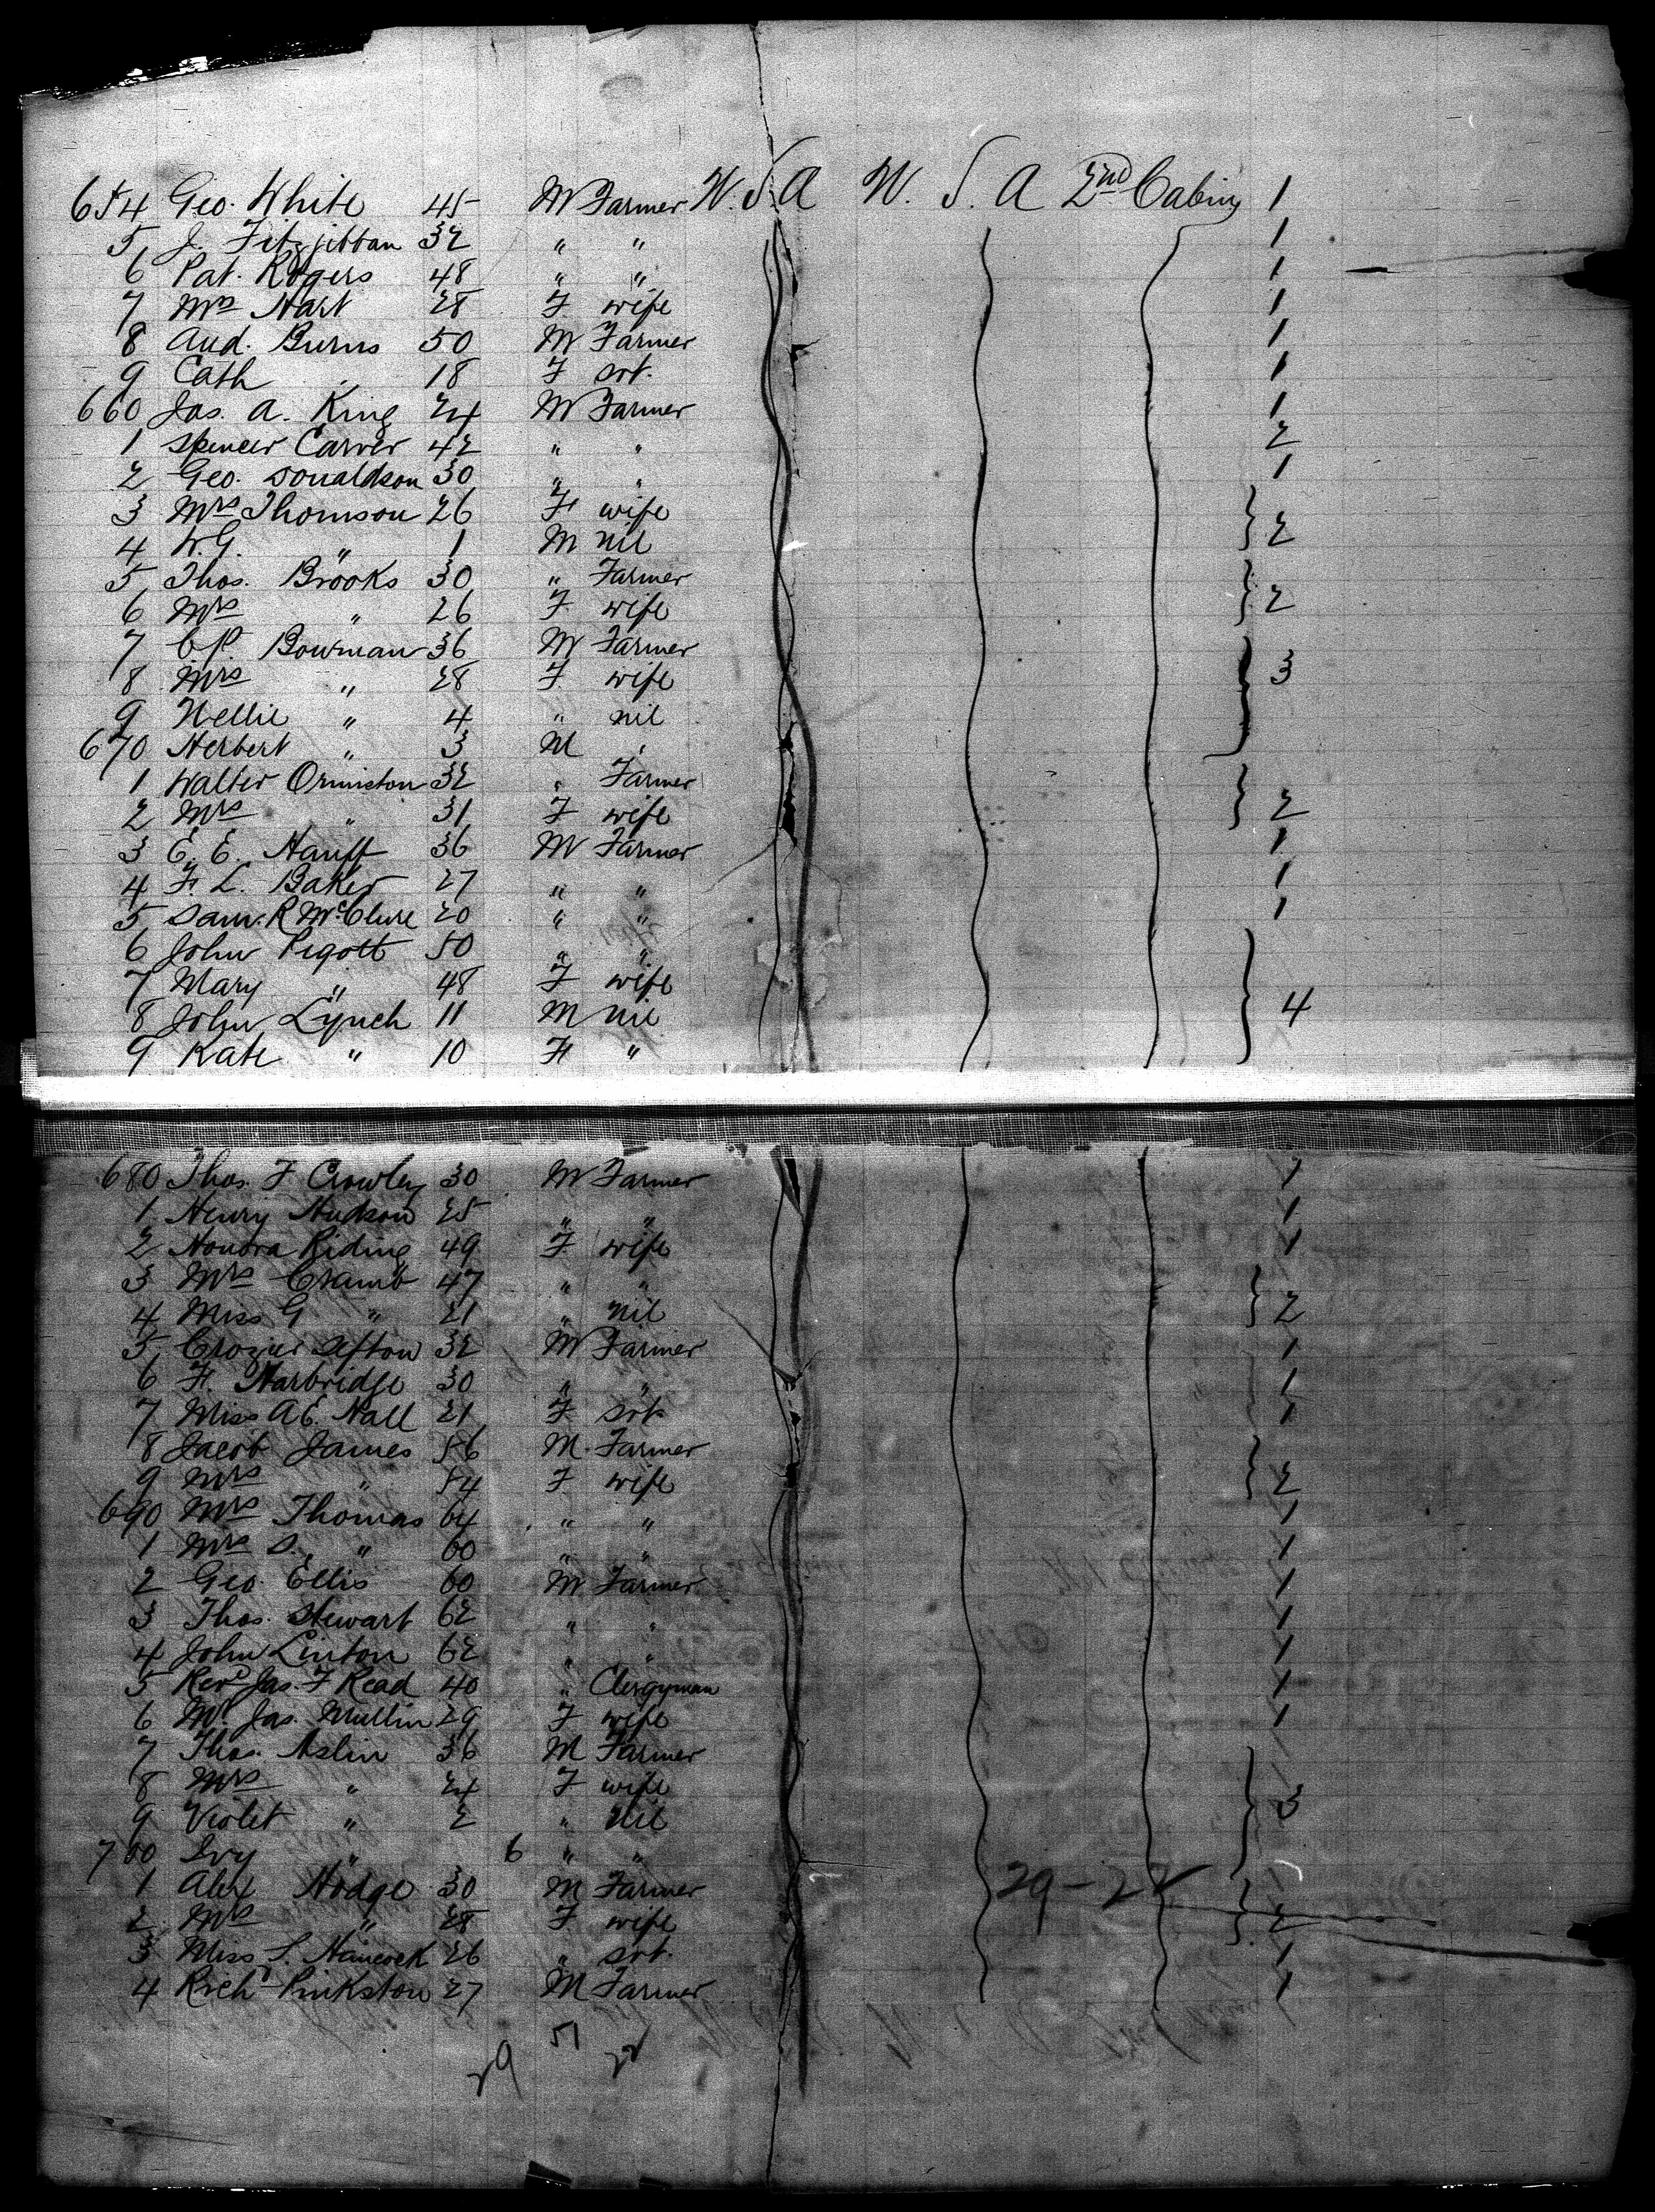 654 Geo. White 45 M Farmer U.S.A U.S.A 2nd Cabin 1
5 J. Fitzgibban 32 " " 1
6 Pat. Rogers 48 " " 1
7 Mrs Hart 28 F wife 1
8 And. Burns 50 M Farmer 1
9 Cath " 18 F svt. 1
660 Jas. A. King 24 M Farmer 1
1 Spencer Carver 42 " " 2
2 Geo. Donaldson 30 " " 1
3 Mrs Thomson 26 F wife
4 W.G. " 1 M nil 2
5 Thos. Brooks 30 " Farmer
6 Mrs " 26 F wife 2
7 C.P. Bowman 36 M Farmer
8 Mrs " 28 F wife 3
9 Nellie " 4 " nil
670 Herbert " 3 M "
1 Walter Ormiston 32 " Farmer
2 Mrs " 31 F wife 2
3 E. E. Hauff 36 M Farmer 1
4 F. L. Baker 27 " " 1
5 Sam. R McClure 20 " " 1
6 John Pigott 50 " "
7 Mary " 48 F wife
8 John Lynch 11 M nil 4
9 Kate " 10 F "
680 Thos. F Crowley 30 M Farmer 1
1 Henry Hudson 25 " " 1
2 Honora Riding 49 F wife 1
3 Mrs Cramb 47 " "
4 Miss G " 21 " nil 2
5 Crozier Sefton 32 M Farmer 1
6 F. Harbridge 30 " " 1
7 Miss A E. Nall 21 F svt. 1
8 Jacob James 56 M Farmer
9 Mrs " 54 F wife 2
690 Mrs Thomas 64 " " 1
1 Mrs S. " 60 " " 1
2 Geo. Ellis 60 M Farmer 1
3 Thos. Stewart 62 " " 1
4 John Linton 62 " " 1
5 Revd Jas. F Read 40 " Clergyman 1
6 Mrs Jas. Mullin 29 F wife 1
7 Thos. Aslin 36 M Farmer
8 Mrs " 24 F wife
9 Violet " 2 " nil 3
700 Ivy " 6 " "
1 Alex Hodge 30 M Farmer 29-22
2 Mrs " 28 F wife 2
3 Miss L. Hancock 26 " svt. 1
4 Richd Pinkston 27 M Farmer 1
29 51 22